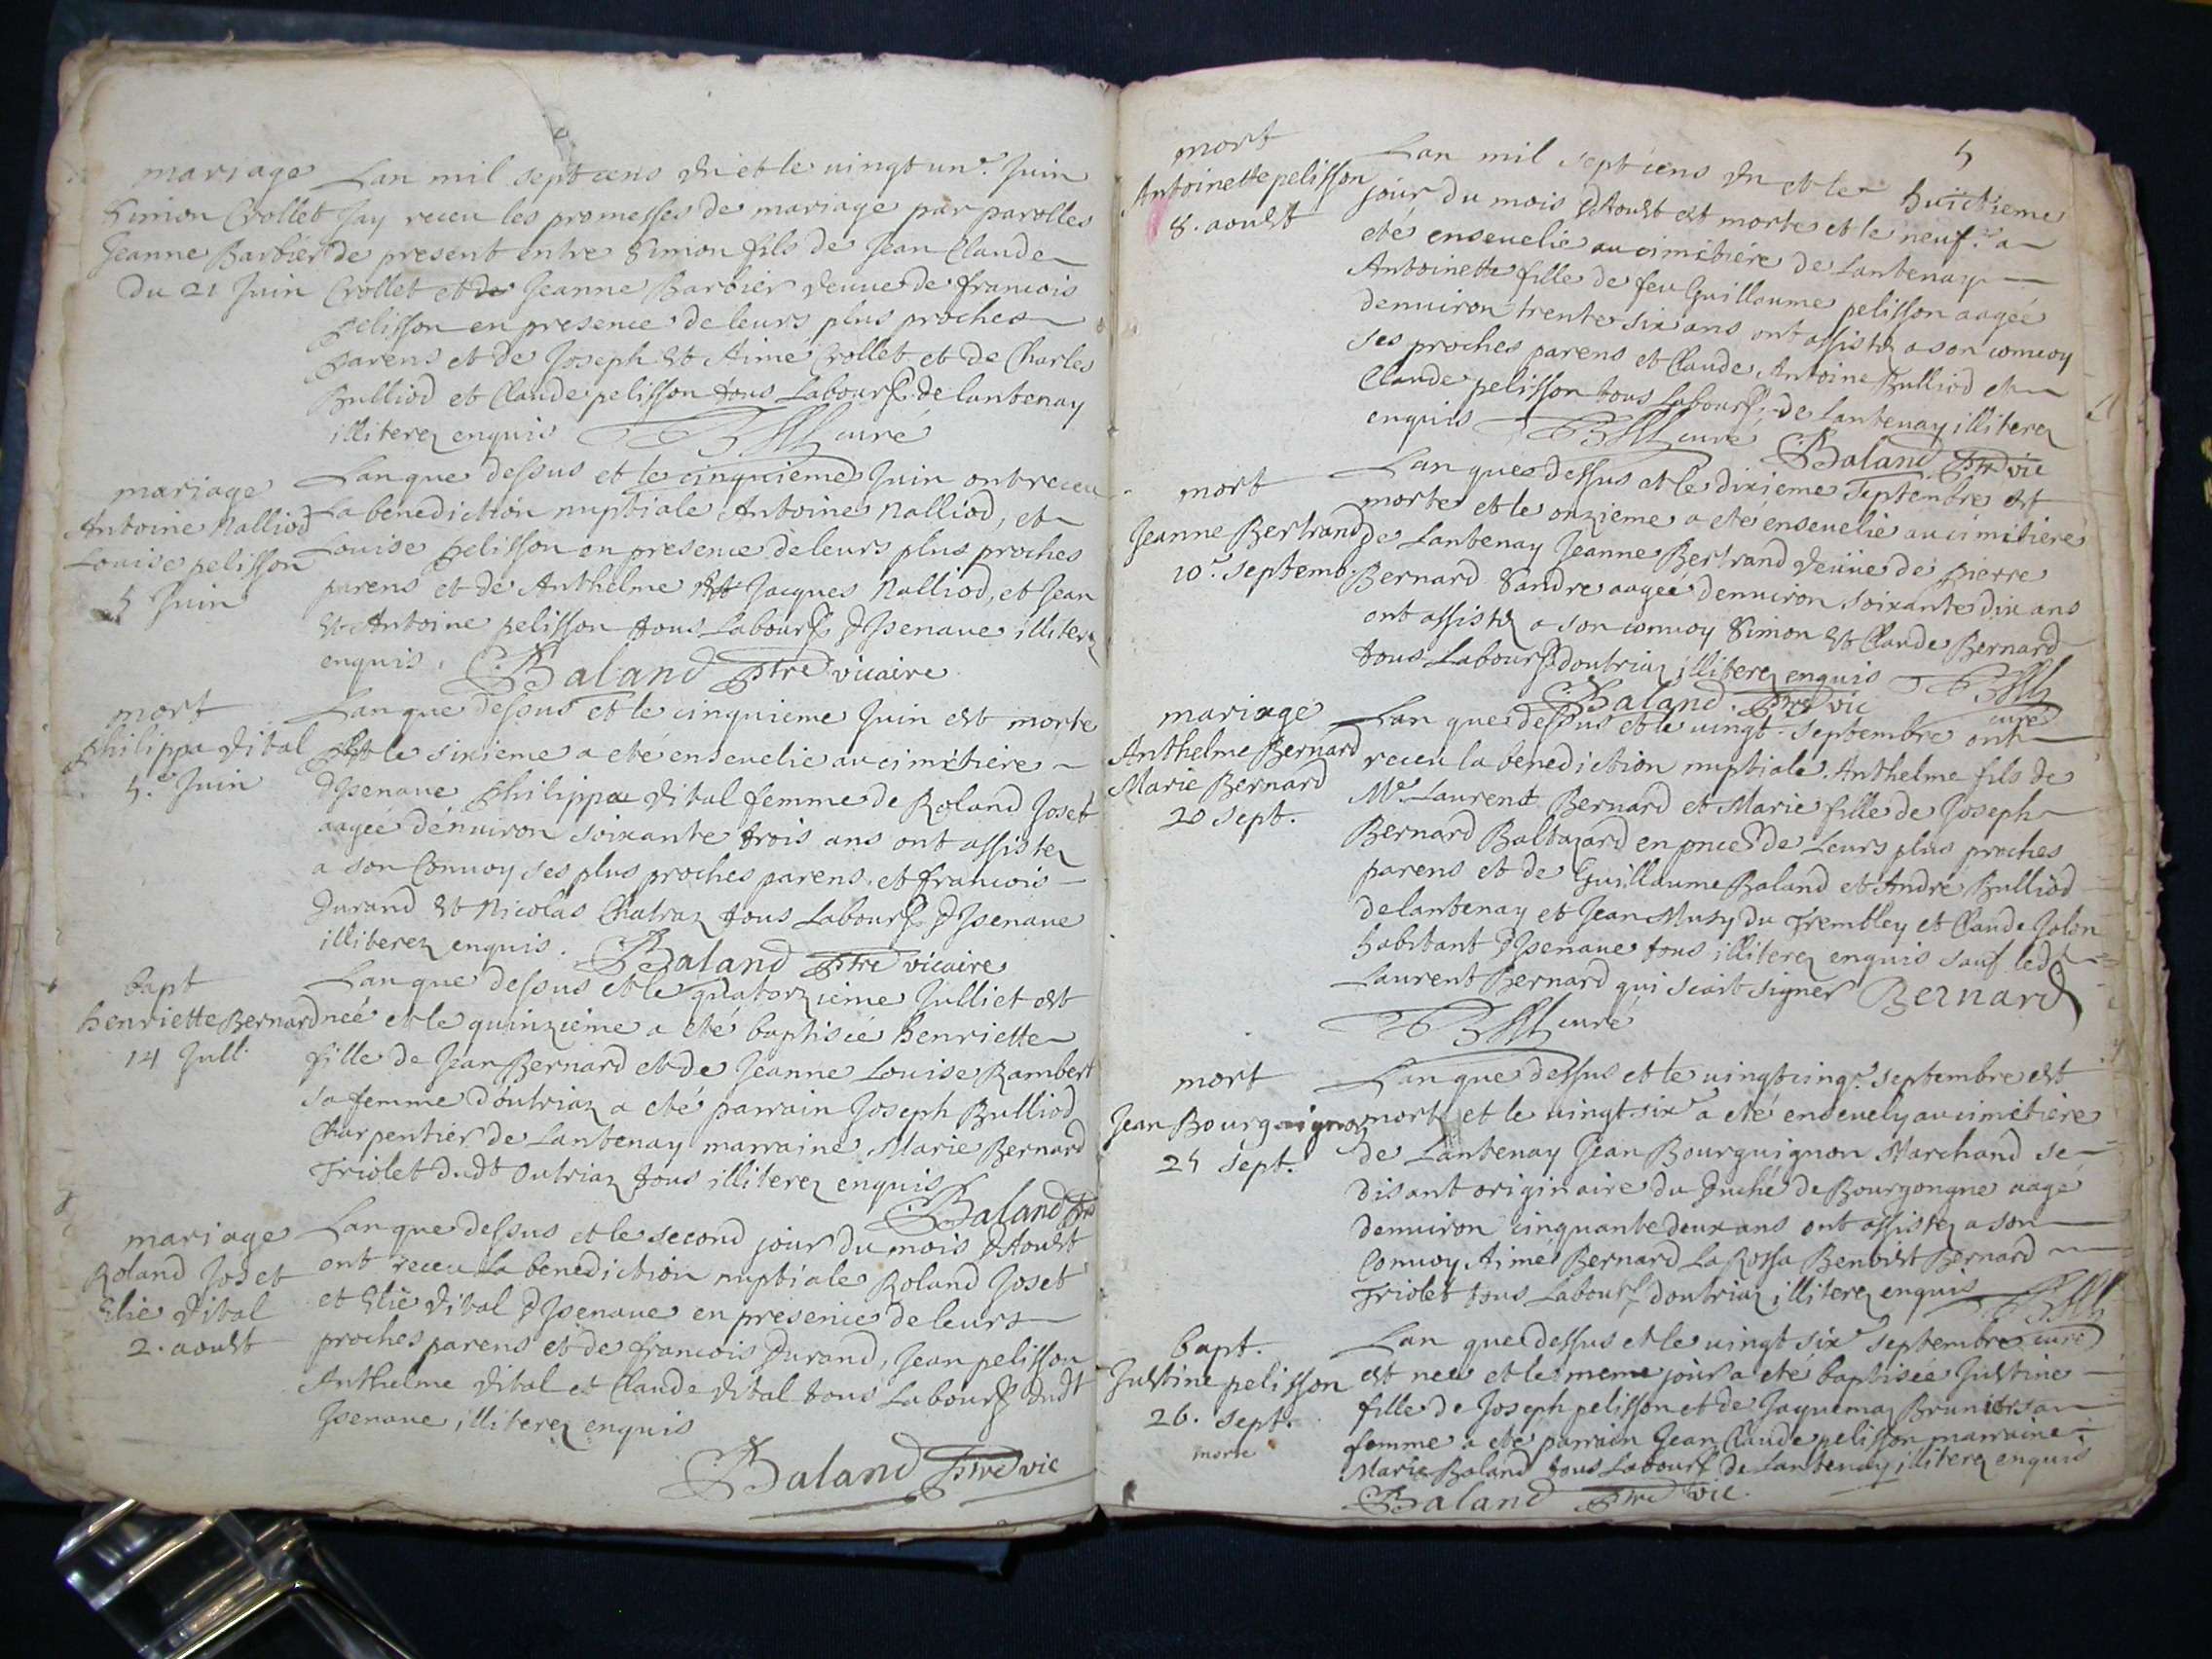 mariage
Simon Crollet
Jeanne Barbier
Du 21 Juin
Lan mil sept cens un et le vingt un.e Juin
Jay receu les promesses de mariage par parolles
de present entre Simon fils de Jean Claude
Crollet et de Jeanne Barbier veuve de francois
pelisson en presence de leurs plus proches
parens et de Joseph et Aime Crollet et de Charles
Bulliod et Claude pelisson tous Labour. de lantenay
illiterez enquis curé
mariage
Antoine Nalliod
Louise pelisson
5 Juin
Lan que dessus et le cinquieme Juin ont receu
La benediction nuptiale Antoine Nalliod, et
Louise pelisson en presence de leurs plus proches
parens et de Anthelme et Jacques Nalliod, et Jean
et Antoine pelisson tous Labour. d'Isenave illiterez
enquis. Baland ptre vicaire
mort
philippa vital
5.e Juin
Lan que dessus et le cinquieme Juin est morte
et le sixieme a eté ensevelie au cimetiere
d'Isenave philippa vital femme de Roland Joset
aagée d'environ soixante trois ans ont assistez
a son Convoy ses plus proches parens et francois
Durand et Nicolas Chatraz tous Labour. d'Isenave
illiterez enquis. Baland ptre vicaire
bapt
henriette Bernard
14 Jull.
Lan que dessus et le quatorzieme Julliet est
née et le quinzieme a eté baptisée henriette
fille de Jean Bernard et de Jeanne Louise Rambert
sa femme d'outriaz a eté parrain Joseph Bulliod
Charpentier de Lantenay marraine Marie Bernard
Triolet dudt Outriaz tous illiterez enquis
Baland ptre
mariage
Roland Joset
Elie vital
2. aoust
Lan que dessus et le second jour du mois d'Aoust
ont receu La benediction nuptiale Roland Joset
et Elie vital d'Isenave en presence de leurs
proches parens et de francois Durand, Jean pelisson
Anthelme vital et Claude vital tous Labour. dudt
Isenave illiterez enquis
Baland ptre vic
5
mort
Antoinette pelisson
8. aoust
Lan mil sept cens un et le huictieme
jour du mois d'Aoust est morte et le neuf.e a
eté ensevelie au cimetiére de Lantenay
Antoinette fille de feu Guillaume pelisson aagée
denviron trente six ans ont assistez a son convoy
ses proches parens et Claude, Antoine Bulliod et
Claude pelisson tous Labour. de Lantenay illiterez
enquis curé Baland ptre vic
mort
Jeanne Bertrand
10.e septemb.
Lan que dessus et le dixieme septembre est
morte et le onzieme a eté ensevelie au cimitiére
de Lantenay Jeanne Bertrand veüve de pierre
Bernard Sandre aagée denviron soixante dix ans
ont assistez a son convoy Simon et Claude Bernard
tous Labour. doutriaz illiterez enquis
Baland ptre vic curé
mariage
Anthelme Bernard
Marie Bernard
20 sept.
Lan que dessus et le vingt. septembre ont
receu la benediction nuptiale. Anthelme fils de
Me. Laurent Bernard et Marie fille de Joseph
Bernard Baltazard en pnce de Leurs plus proches
parens et de Guillaume Baland et André Bulliod
de lantenay et Jean Musy du Trembley et Claude Jolen
habitant d'Isenave tous illiterez enquis sauf ledt
Laurent Bernard qui scait signer Bernard
curé
mort
Jean Bourguignon
25 sept.
Lan que dessus et le vingt cinq.e septembre est
mort et le vingt six.e a eté ensevely au cimetiére
de Lantenay Jean Bourguignon Marchand se
disant originaire du Duché de Bourgongne aagé
denviron cinquante deux ans ont assistez a son
Convoy Aimé Bernard La Rossa Benoist Bernard
Triolet tous Labour. doutriaz illiterez enquis
curé
bapt.
Justine pelisson
26. sept.
morte
Lan que dessus et le vingt six.e septembre
est née et le meme jour a eté baptisée Justine
fille de Joseph pelisson et de Jaquemaz Brunier sa
femme a eté parrain Jean Claude pelisson marraine
Marie Baland tous Labour. de Lantenay illiterez enquis
Baland ptre vic.